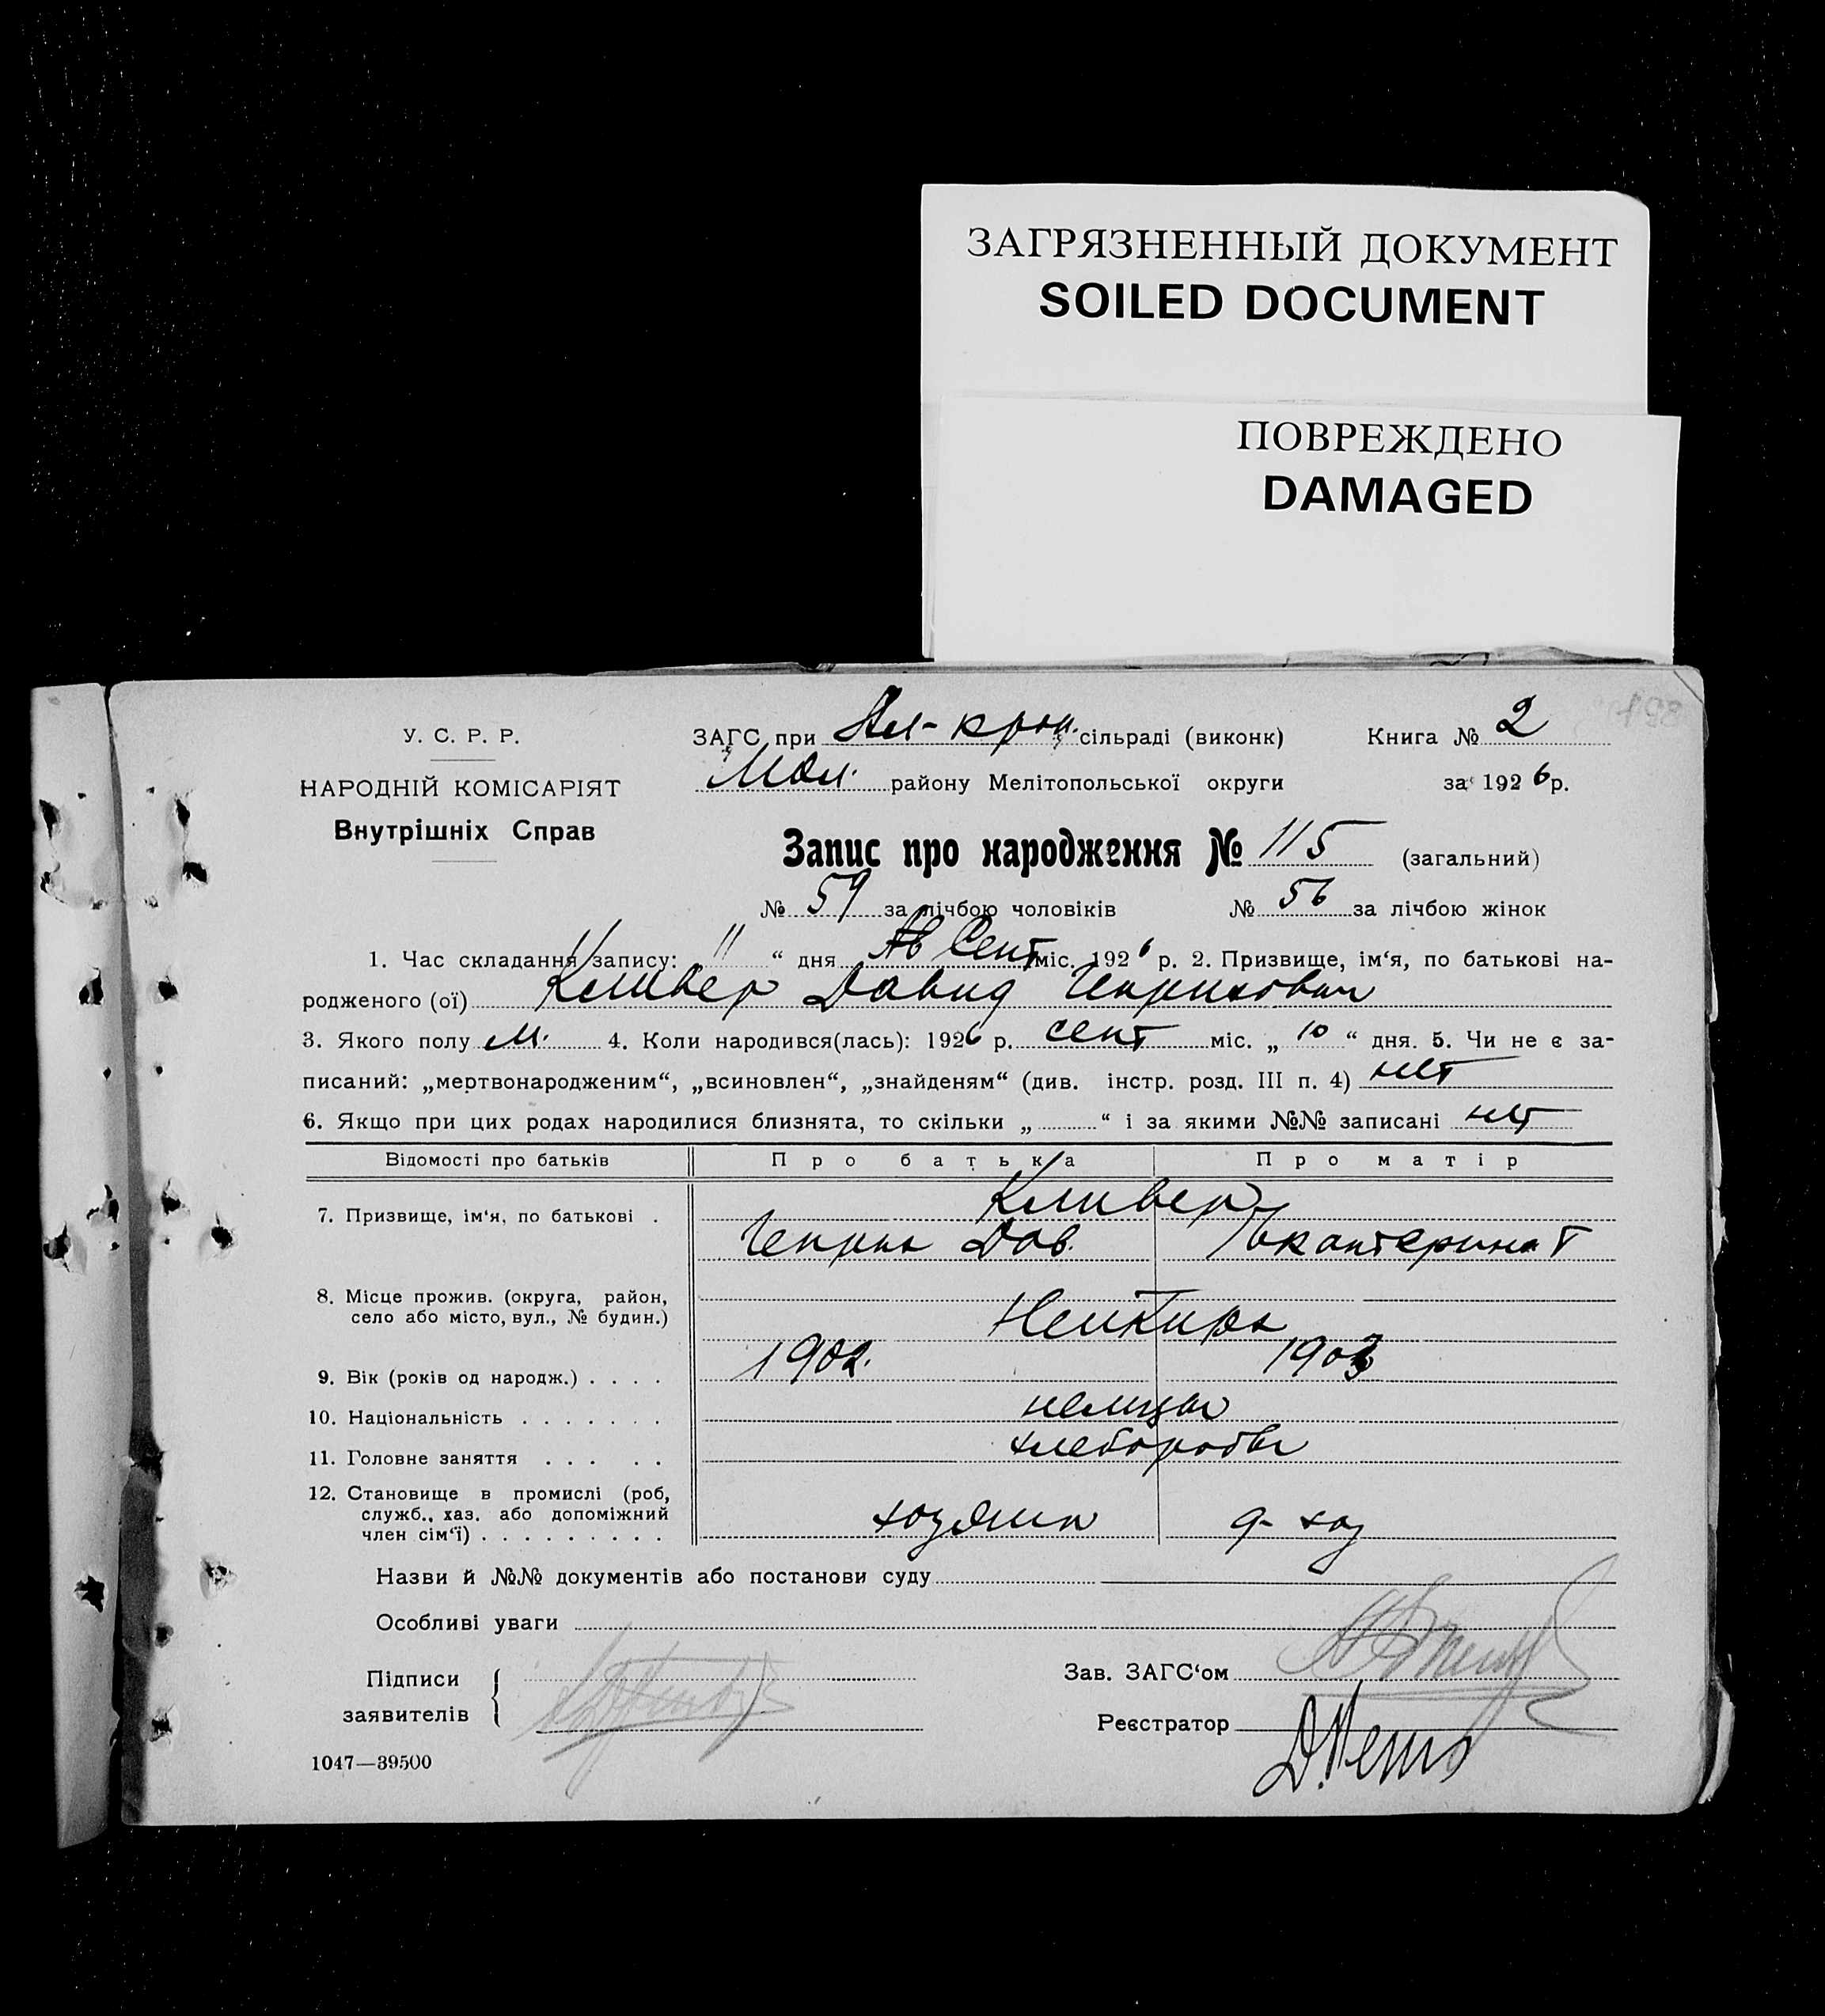 ЗАГРЯЗНЕННЫЙ ДОКУМЕНТ
SOILED DOCUMENT
ПОВРЕЖДЕНО
DAMAGED
У. С. Р. Р.
НАРОДНІЙ КОМІСАРІЯТ
Внутрішніх Справ
ЗАГС при сільраді (виконк) Книга № 2
Мол. району Мелітопольської округи за 1926 р.
Запис про народження № 115 (загальний)
№ 59 за лічбою чоловіків № 56 за лічбою жінок
1. Час складання запису: 11 “ дня Ав Сент міс. 1926 р. 2. Призвище, ім‘я, по батькові на-
родженого (ої) Кливер Давид Генрихович
3. Якого полу м. 4. Коли народився(лась): 1926 р. сент міс. „ 10 “ дня. 5. Чи не є за-
писаний: „мертвонародженим“, „всиновлен“, „знайденям“ (див. інстр. розд. III п. 4) нет
6. Якщо при цих родах народилися близнята, то скільки „ “ і за якими №№ записані нет
Відомості про батьків Про батька Про матір
7. Призвище, ім‘я, по батькові . Кливер
Генрих Дав. Екатерина Г
8. Місце прожив. (округа, район,
село або місто, вул., № будин.) Нейкирх
9. Вік (років од народж.) . . . . 1902. 1903
10. Національність . . . . . . . немцы
11. Головне заняття . . . . . хлеборобы
12. Становище в промислі (роб,
служб., хаз. або допоміжний
член сім‘ї) . . . . . . . . . хозяин д- хоз
Назви й №№ документів або постанови суду
Особливі уваги
Підписи
заявителів
Зав. ЗАГС‘ом
Реєстратор
1047—39500